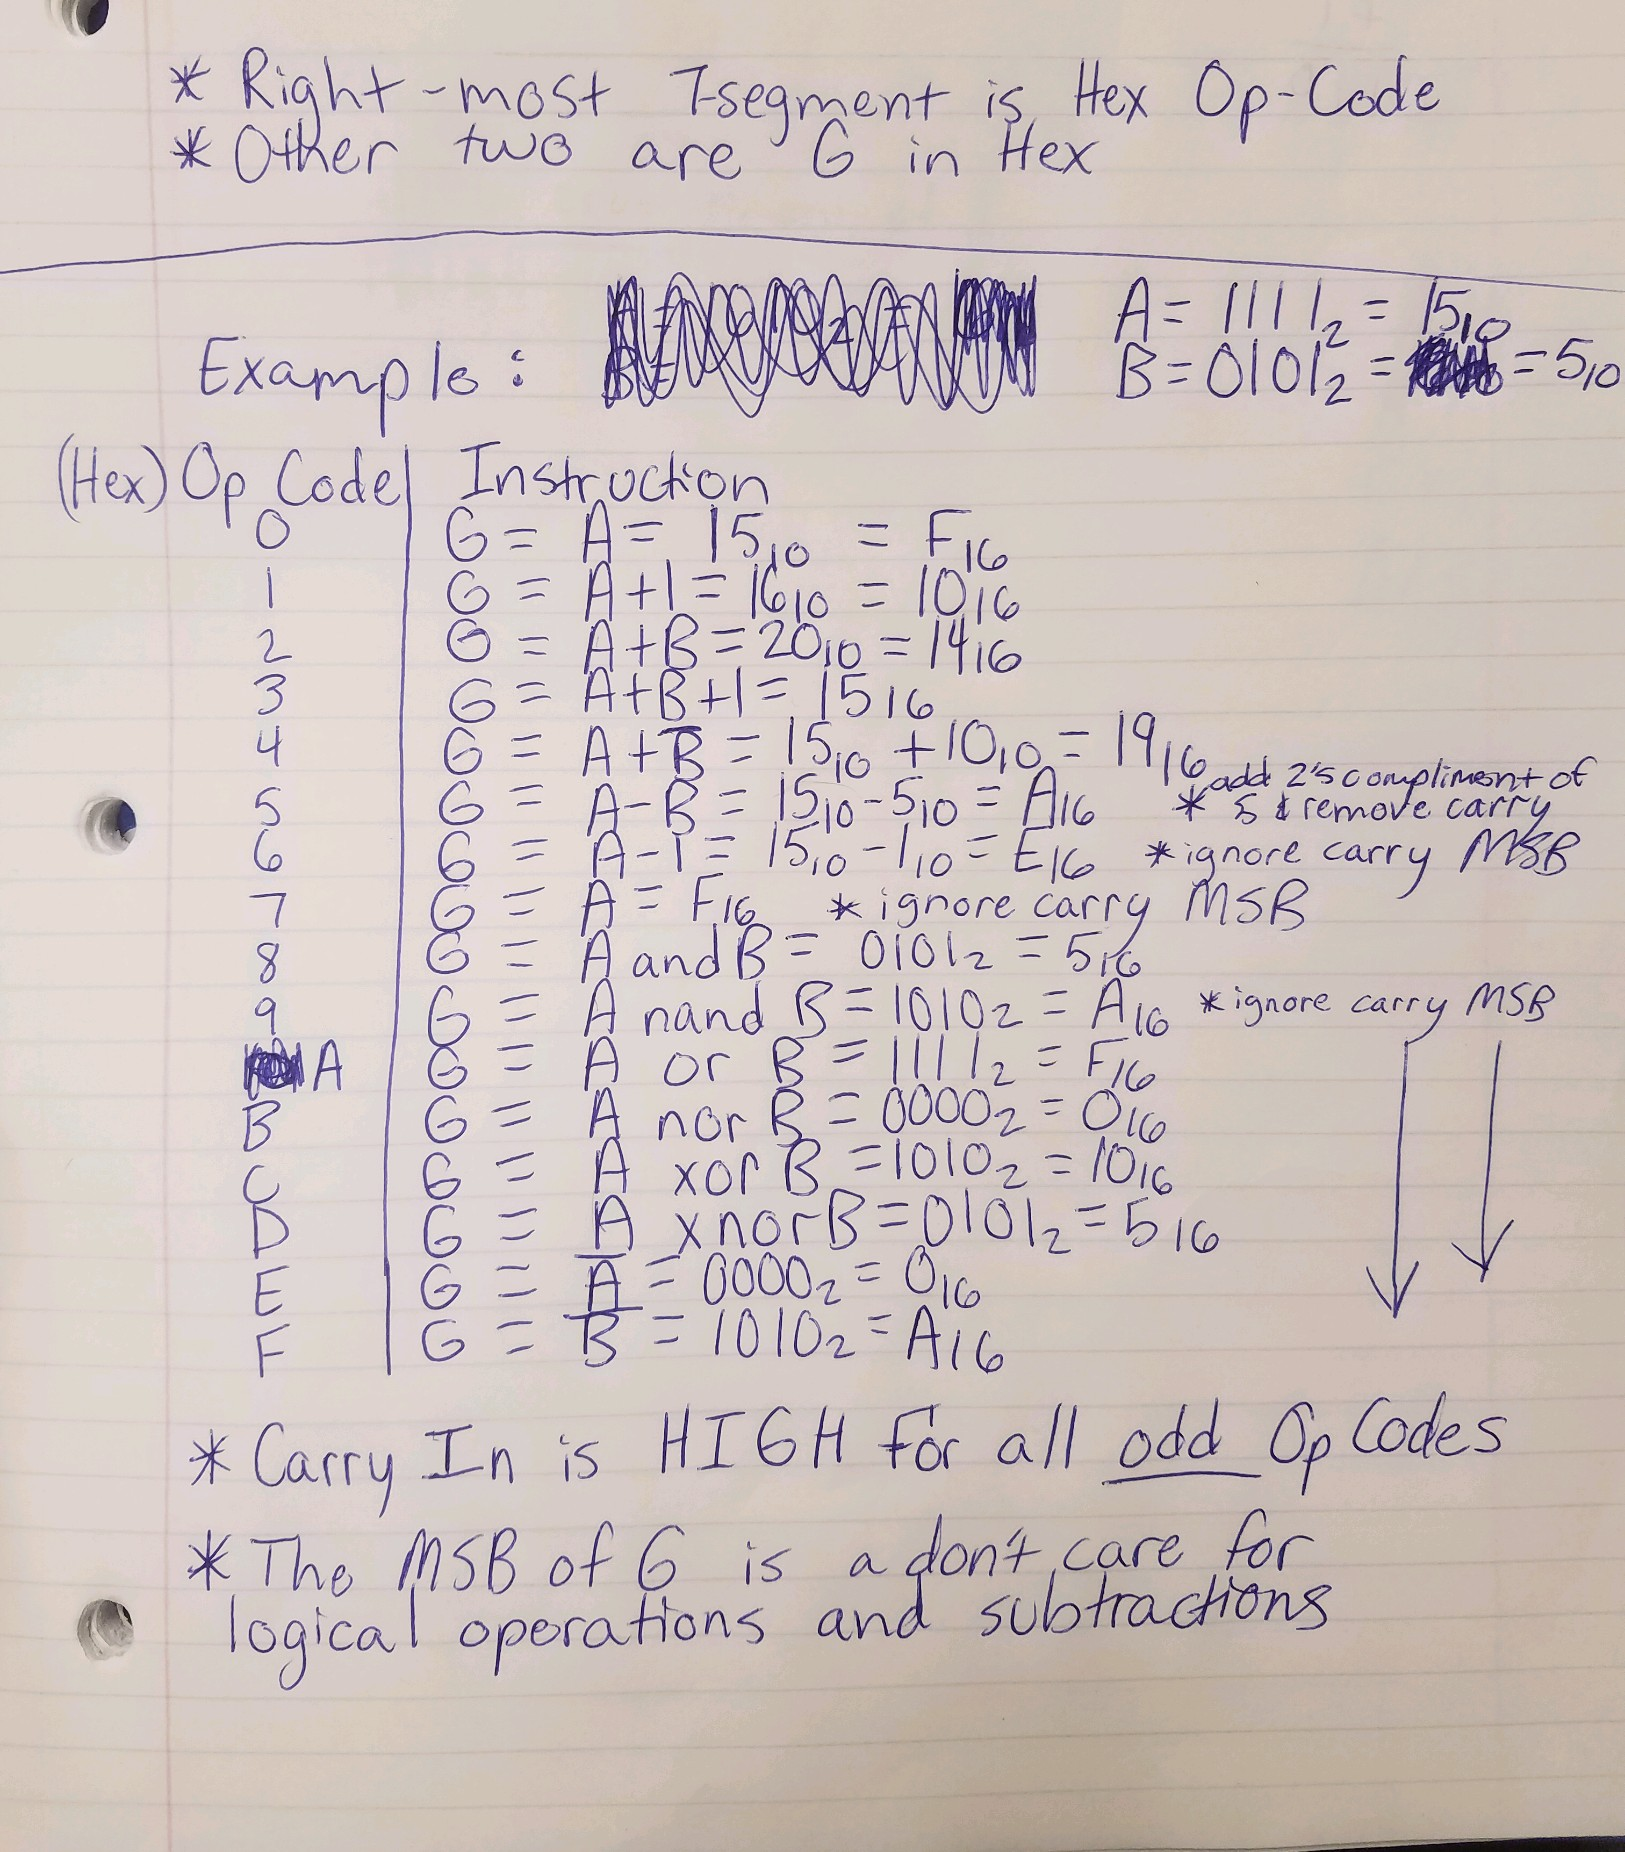 * Right-most 7-segment is Hex Op-Code
* Other two are G in Hex
A = 1111₂ = 15₁₀
Example: B = 0101₂ = = 5₁₀
(Hex) Op Code | Instruction
0 G = A = 15₁₀ = F₁₆
1 G = A+1 = 16₁₀ = 10₁₆
2 G = A+B = 20₁₀ = 14₁₆
3 G = A+B+1 = 15₁₆
4 G = A+B̅ = 15₁₀ + 10₁₀ = 19₁₆
5 G = A-B = 15₁₀-5₁₀ = A₁₆ * add 2's compliment of
5 & remove carry
6 G = A-1 = 15₁₀-1₁₀ = E₁₆ * ignore carry MSB
7 G = A = F₁₆ * ignore carry MSB
8 G = A and B = 0101₂ = 5₁₆
9 G = A nand B = 1010₂ = A₁₆ * ignore carry MSB
A G = A or B = 1111₂ = F₁₆
B G = A nor B = 0000₂ = 0₁₆
C G = A xor B = 1010₂ = 10₁₆
D G = A xnor B = 0101₂ = 5₁₆
E G = A̅ = 0000₂ = 0₁₆
F G = B̅ = 1010₂ = A₁₆
* Carry In is HIGH for all odd Op Codes
* The MSB of G is a don't care for
logical operations and subtractions